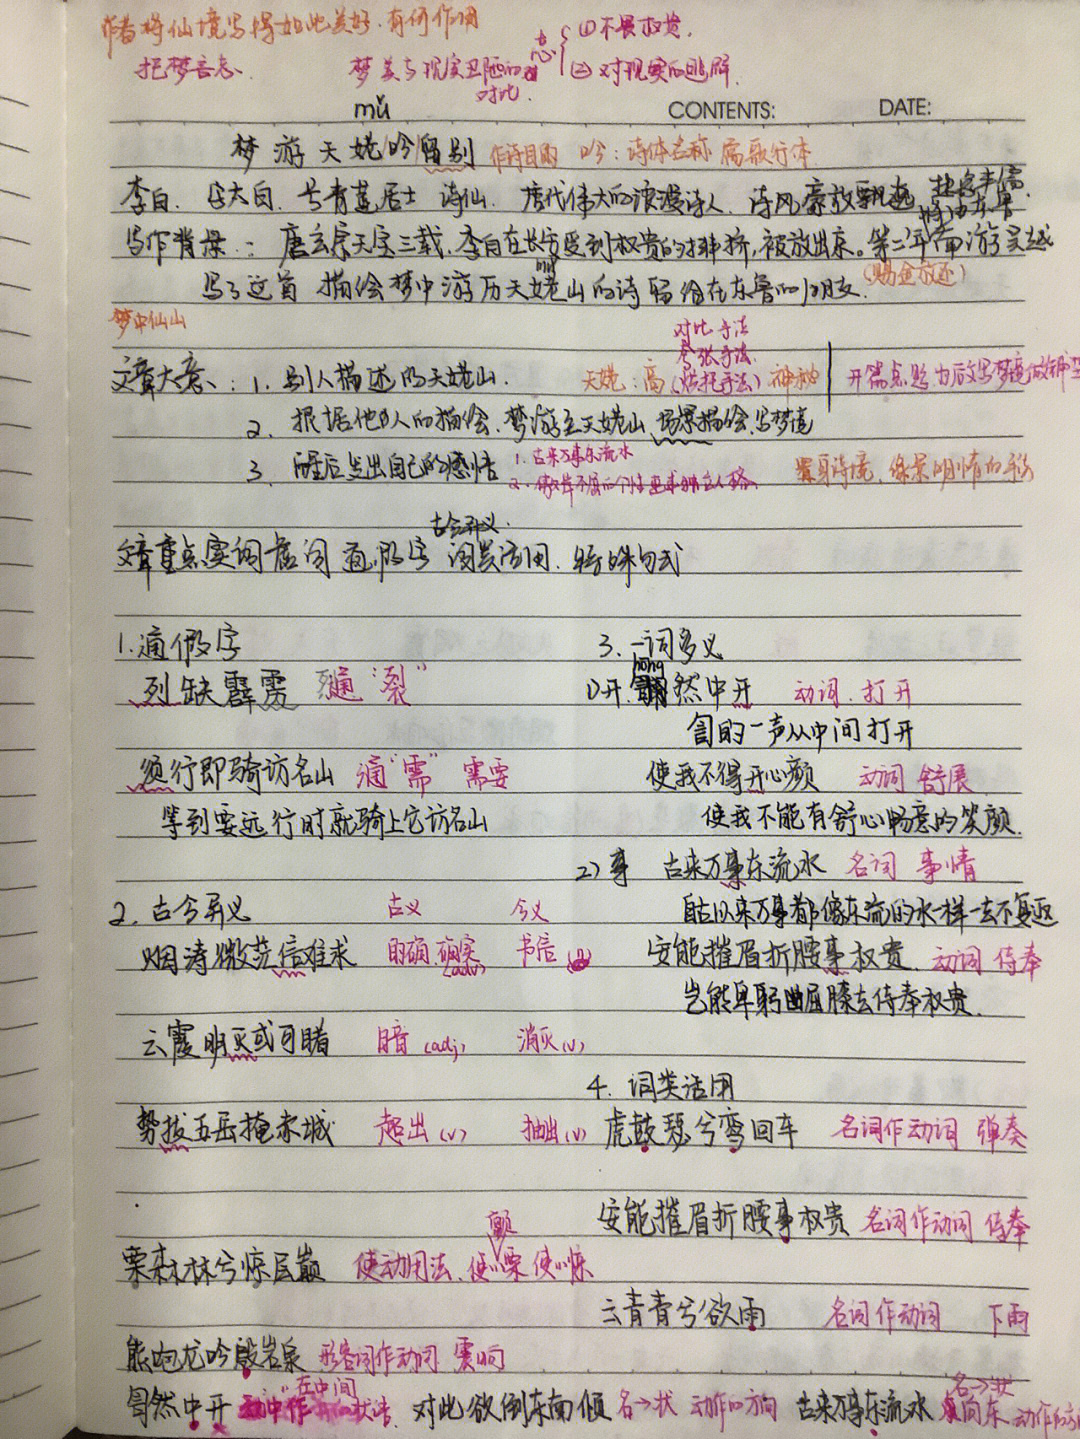 作者将仙境写得如此美好,有何作用
托梦言志.
梦美与现实丑陋的对比.
志 { ①不畏权贵,
②对现实的
mǔ
CONTENTS:
DATE:
梦游天姥吟/留别 作诗目的 吟:诗体名称 属歌行体
李白. 字太白. 号青莲居士 诗仙. 唐代伟大的浪漫诗人. 诗风豪放飘逸.
写作背景:: 唐玄宗天宝三载,李白在长安受到权贵的排挤,被放出京。第二年南游吴越
(赐金放还)
写了这首 描绘梦中游历天姥山的诗 留给在东鲁的朋友.
梦中仙山
对比手法
夸张手法
文章大意、: 1. 别人描述的天姥山. 天姥:高(烘托手法)神秘
开篇点题 为后文写梦境
2. 根据他人的描绘,梦游至天姥山,场景描绘,写梦境
3. 醒后发出自己的感悟
1. 古来万事东流水
2. 傲岸不屈的个性 追求独立人格
置身诗境,缘景明情
古今异义.
文章重点实词虚词 通假字 词类活用. 特殊句式
1. 通假字
列缺霹雳 列通“裂”
须行即骑访名山 通“需” 需要
等到要远行时就骑上它访名山
2. 古今异义 古义 今义
烟涛微茫信难求 的确,确实(adv) 书信(n)
云霞明灭或可睹 暗(adj) 消灭(v)
势拔五岳掩赤城 超出(v) 抽出(v)
3. 一词多义
hōng
1)开. 訇然中开 动词.打开
訇的一声从中间打开
使我不得开心颜 动词 舒展
使我不能有舒心畅意的笑颜.
2)事 古来万事东流水 名词 事情
自古以来万事都像东流的水一样一去不复返
安能摧眉折腰事权贵. 动词 侍奉
岂能卑躬屈膝去侍奉权贵.
4. 词类活用
虎鼓瑟兮鸾回车 名词作动词 弹奏
安能摧眉折腰事权贵 名词作动词 侍奉
颤
栗森林兮惊层巅 使动用法、使…栗 使…惊
云青青兮欲雨 名词作动词 下雨
熊咆龙吟殷岩泉 形容词作动词 震响
訇然中开 “在中间” 状语.
对此欲倒东南倾 名→状 动作的方向
古来万事东流水 名→状 向东 动作的方向